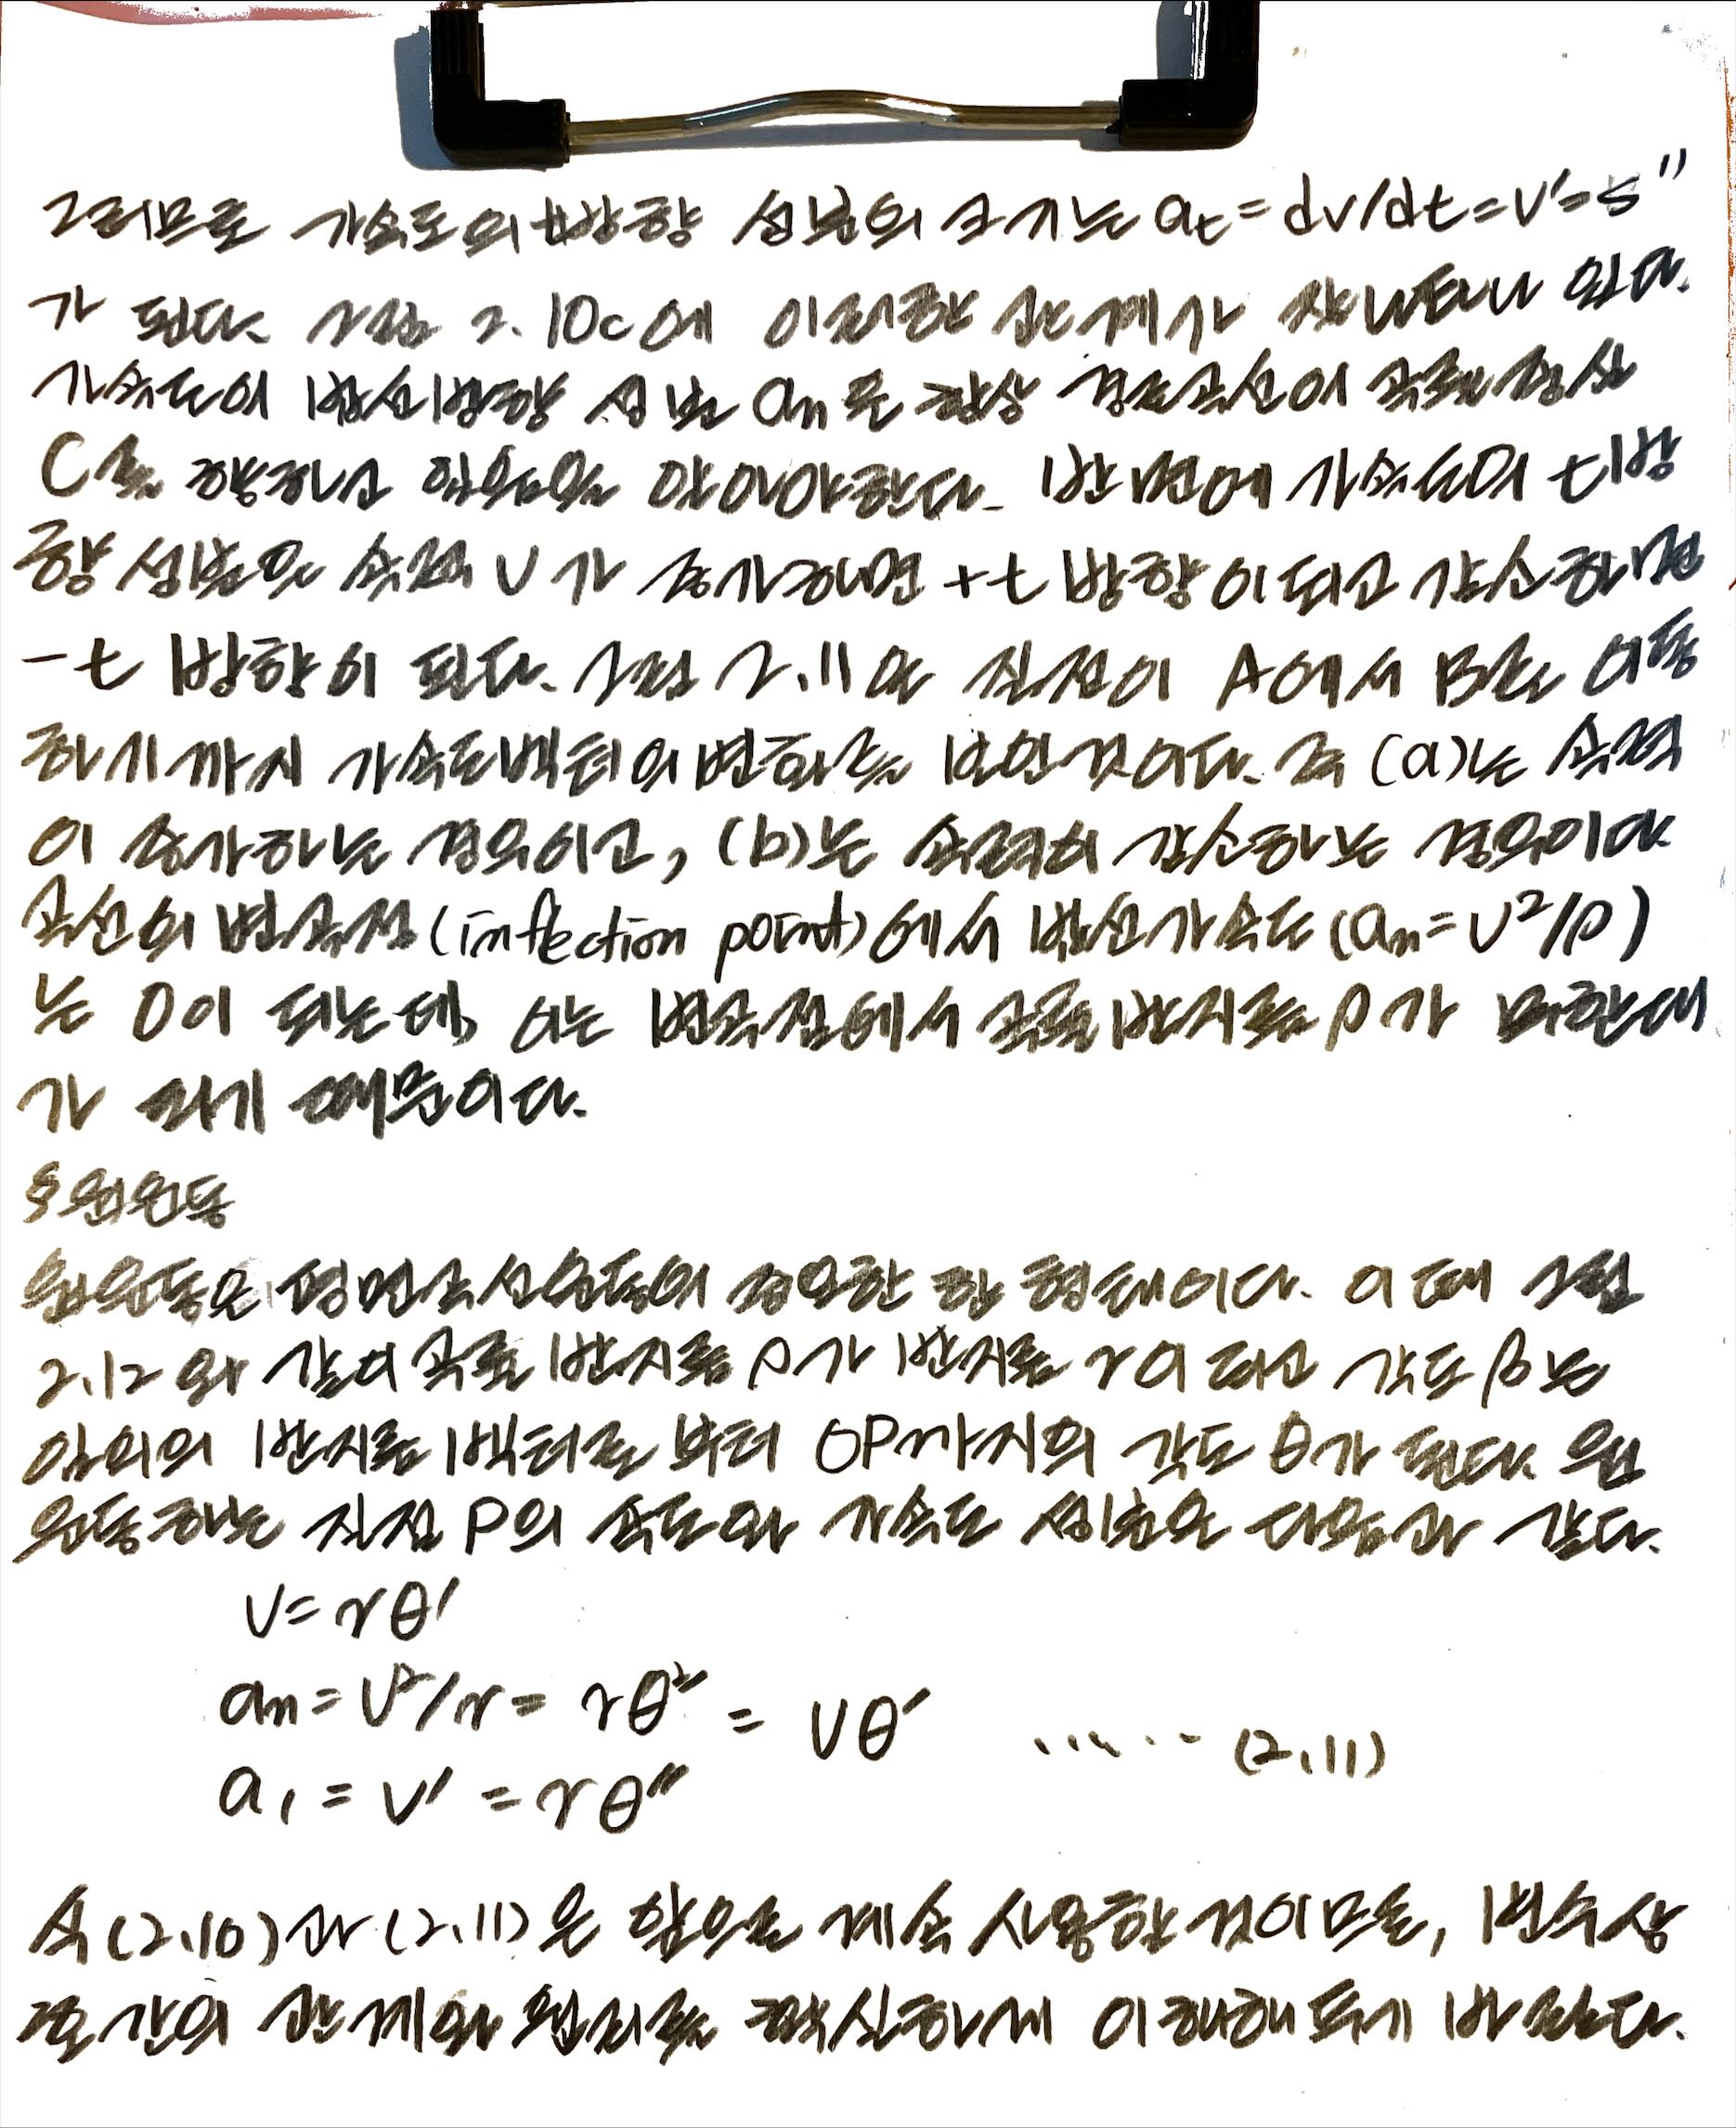 그러므로 가속도의 t방향 성분의 크기는 at = dv/dt = v' = s''
가 된다. 그림 2.10c에 이러한 관계가 잘 나타나 있다.
가속도의 법선방향 성분 an은 항상 경로곡선의 곡률중심
C를 향하고 있음을 알아야한다. 반면에 가속도의 t방
향 성분은 속력 v가 증가하면 +t 방향이 되고 감소하면
-t 방향이 된다. 그림 2.11은 질점이 A에서 B로 이동
하기까지 가속도벡터의 변화를 보인것이다. 즉 (a)는 속력
이 증가하는 경우이고, (b)는 속력이 감소하는 경우이다
곡선의 변곡점(inflection point)에서 법선가속도(an=v²/ρ)
는 0이 되는데, 이는 변곡점에서 곡률반지름 ρ가 무한대
가 되기 때문이다.
§원운동
원운동은 평면곡선운동의 중요한 한 형태이다. 이때 그림
2.12와 같이 곡률 반지름 ρ가 반지름 r이 되고 각도 β는
임의의 반지름 벡터로 부터 OP까지의 각도 θ가 된다. 원
운동하는 질점 P의 속도와 가속도 성분은 다음과 같다.
v = rθ'
an = v²/r = rθ² = vθ' ...... (2.11)
a1 = v' = rθ''
식(2.10)과 (2.11)은 앞으로 계속 사용할 것이므로, 변수상
호간의 관계와 원리를 확실하게 이해해 두기 바란다.